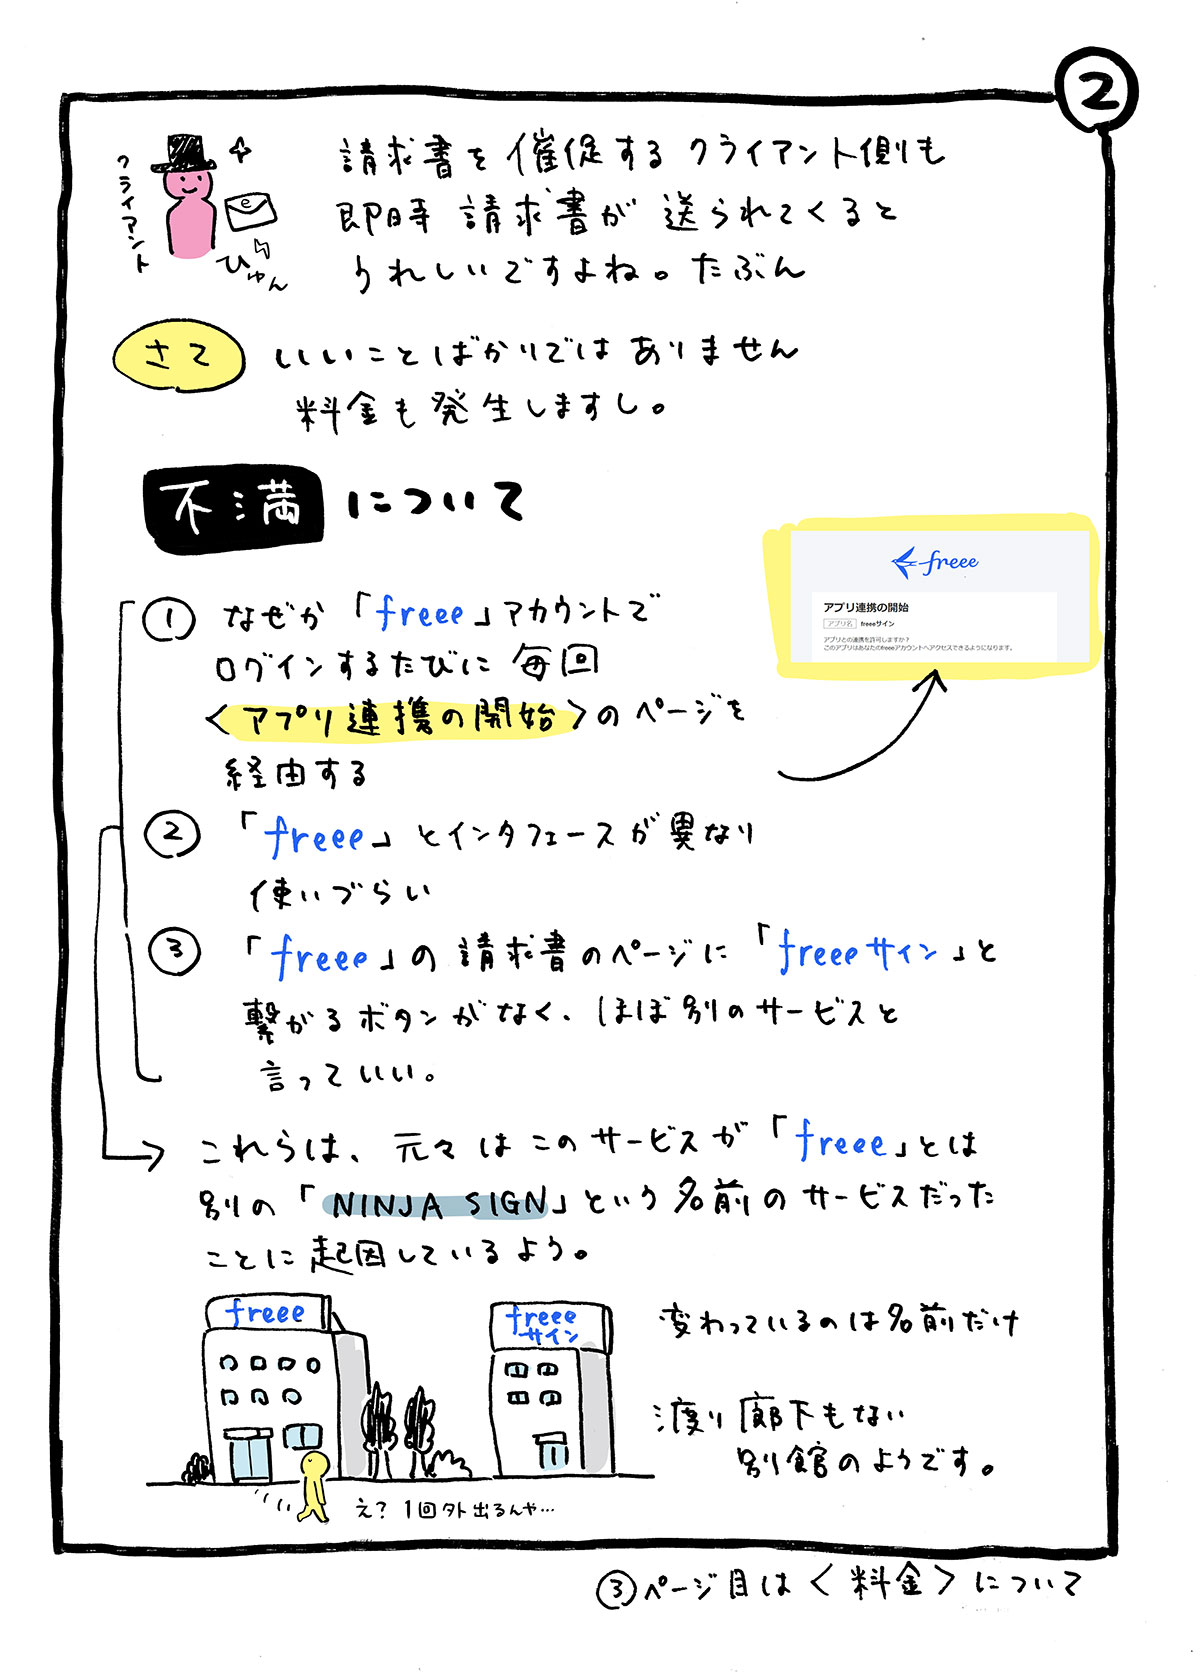 ②
クライアント
e
ひゅん
請求書を催促するクライアント側も
即時請求書が送られてくると
うれしいですよね。たぶん
さて
いいことばかりではありません
料金も発生しますし。
不満について
① なぜか「freee」アカウントで
ログインするたびに毎回
〈アプリ連携の開始〉のページを
経由する
freee
アプリ連携の開始
アプリ名 freeeサイン
アプリとの連携を許可しますか?
このアプリはあなたのfreeeアカウントへアクセスできるようになります。
② 「freee」とインタフェースが異なり
使いづらい
③ 「freee」の請求書のページに「freeeサイン」と
繋がるボタンがなく、ほぼ別のサービスと
言っていい。
これらは、元々はこのサービスが「freee」とは
別の「NINJA SIGN」という名前のサービスだった
ことに起因しているよう。
freee
freee
サイン
変わっているのは名前だけ
渡り廊下もない
別館のようです。
え?1回外出るんや…
③ページ目は〈料金〉について